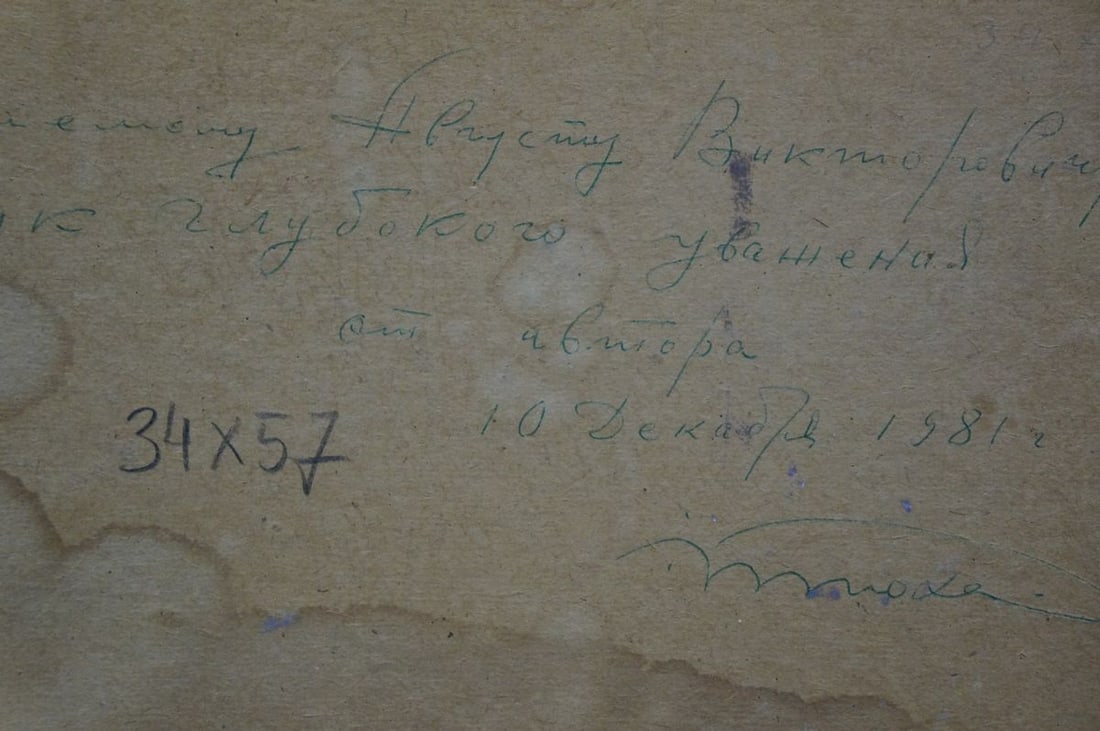 аемому Августу Викторович
ак глубокого уважения
от автора
10 Декабря 1981 г
34x57